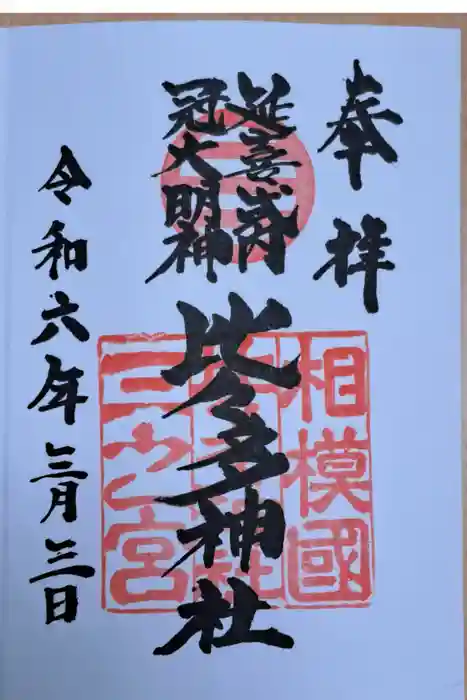 奉拝
延喜式内
冠大明神
比々多神社
令和六年三月三日
相模國
三之宮